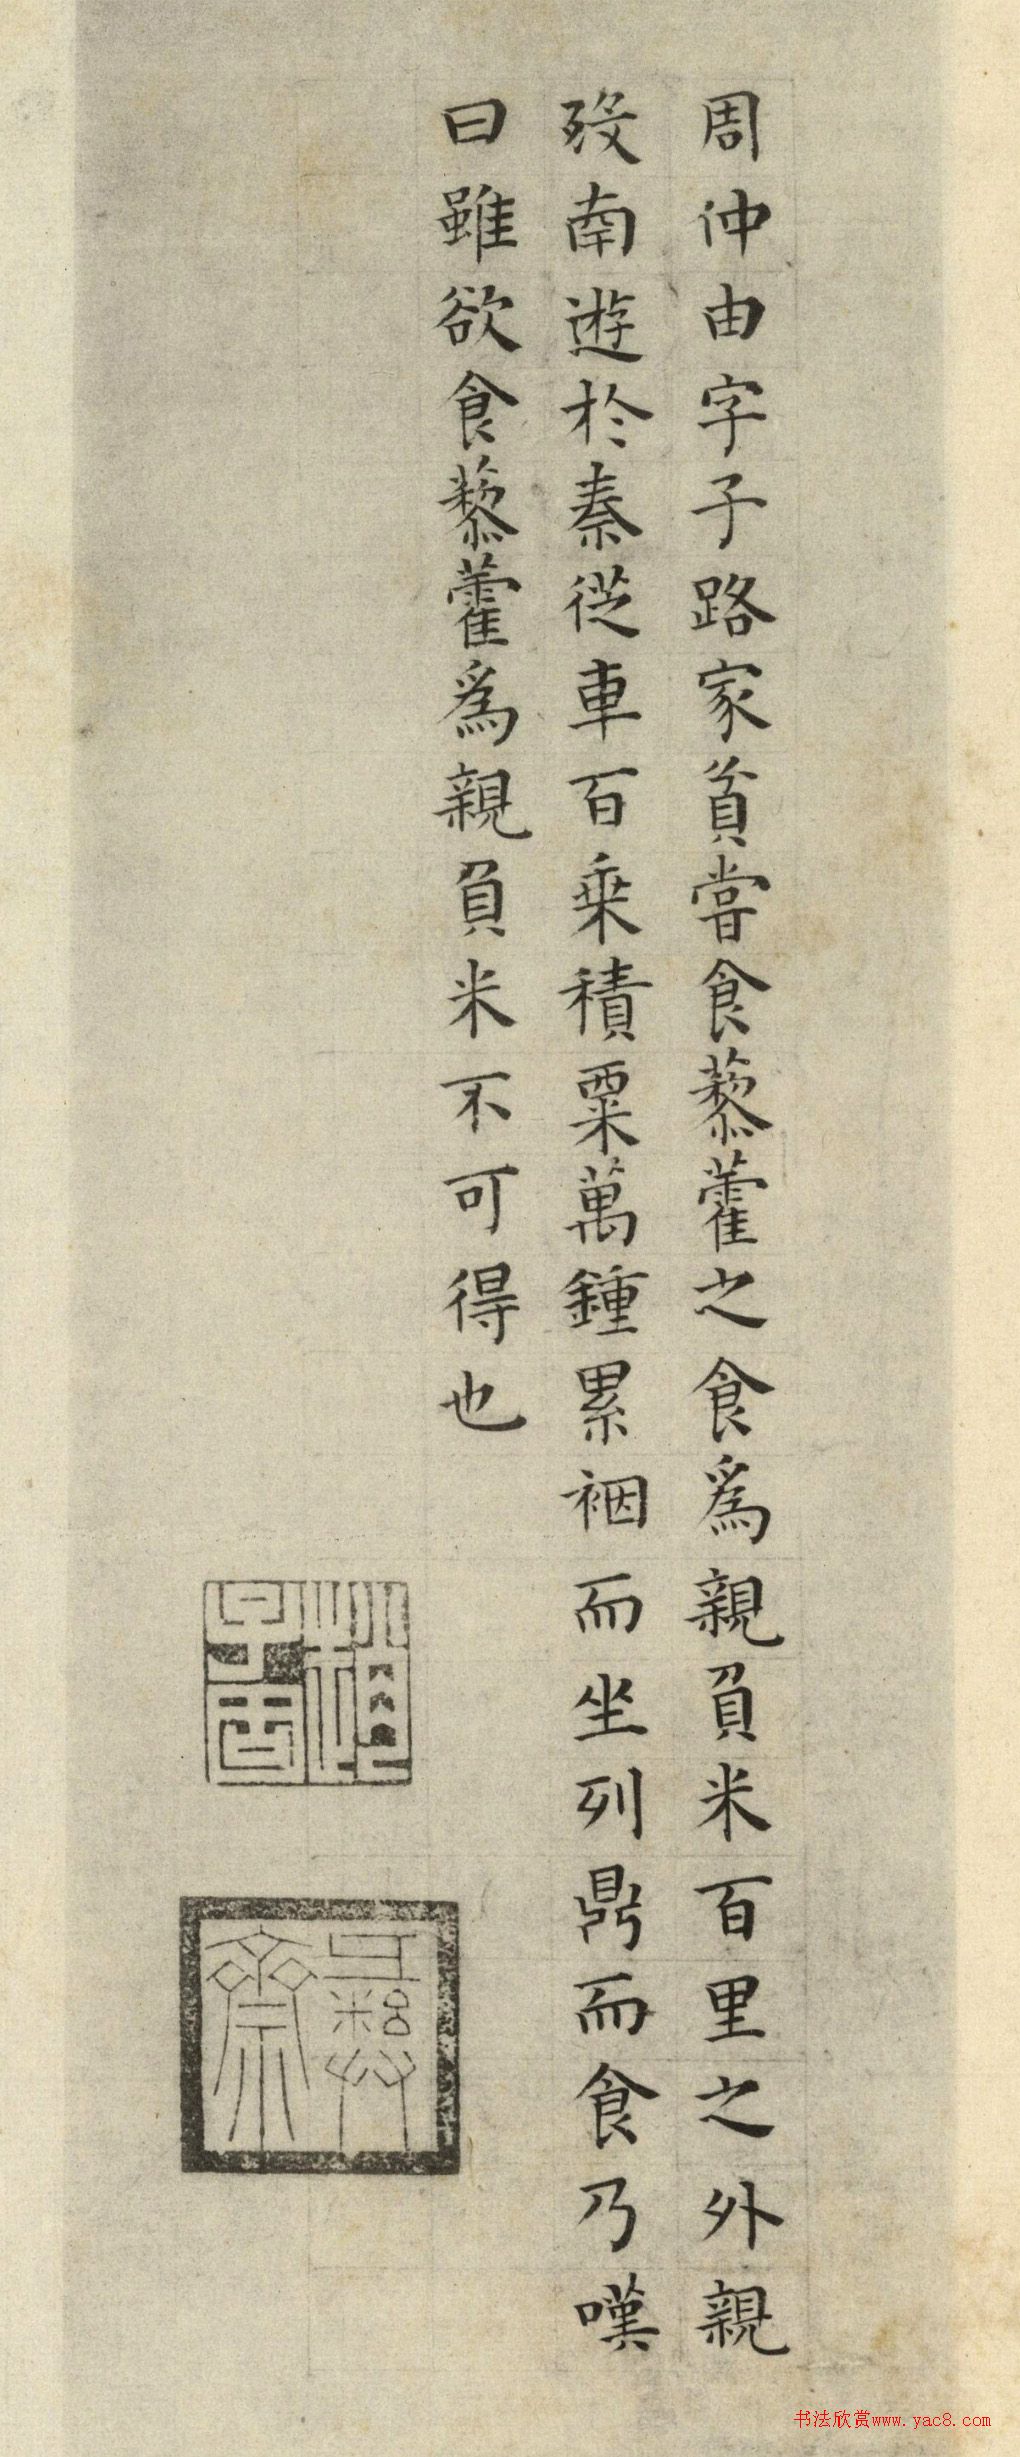 周仲由字子路家貧嘗食藜藿之食爲親負米百里之外親
歿南遊於秦從車百乗積粟萬鍾累裀而坐列鼎而食乃嘆
曰雖欲食藜藿爲親負米不可得也
書法欣赏www.yac8.com